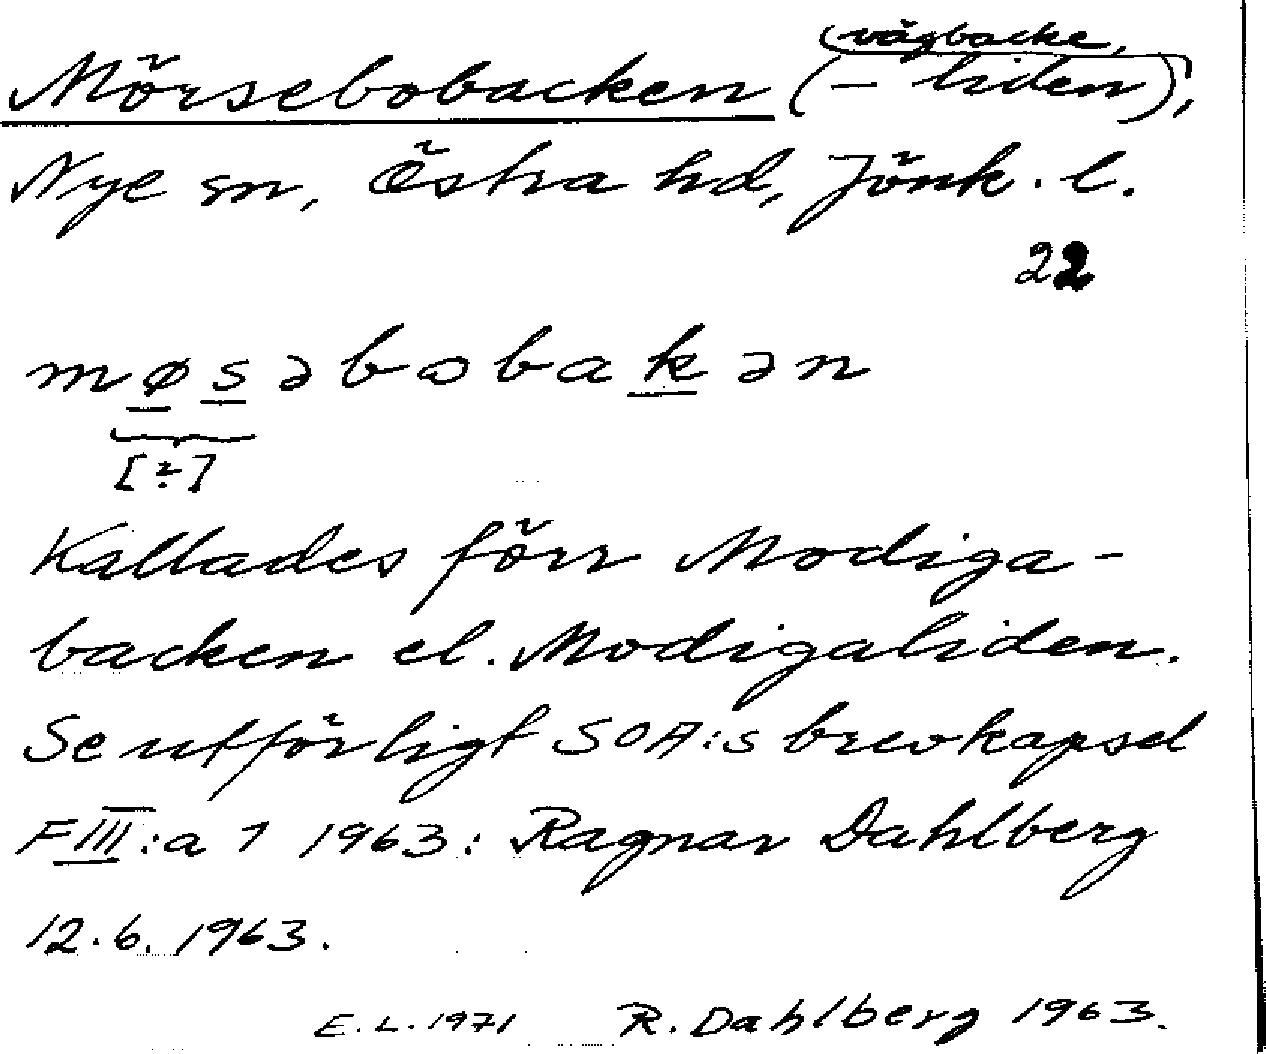 vägbacke,
Mörsebobacken (– liden),
Nye sn, Östra hd, Jönk. l.
22
møsəbobakən
[?]
Kallades förr Modiga-
backen el. Modigaliden.
Se utförligt SOA:s brevkapsel
F III:a 1 1963: Ragnar Dahlberg
12.6.1963.
E.L.1971 R. Dahlberg 1963.